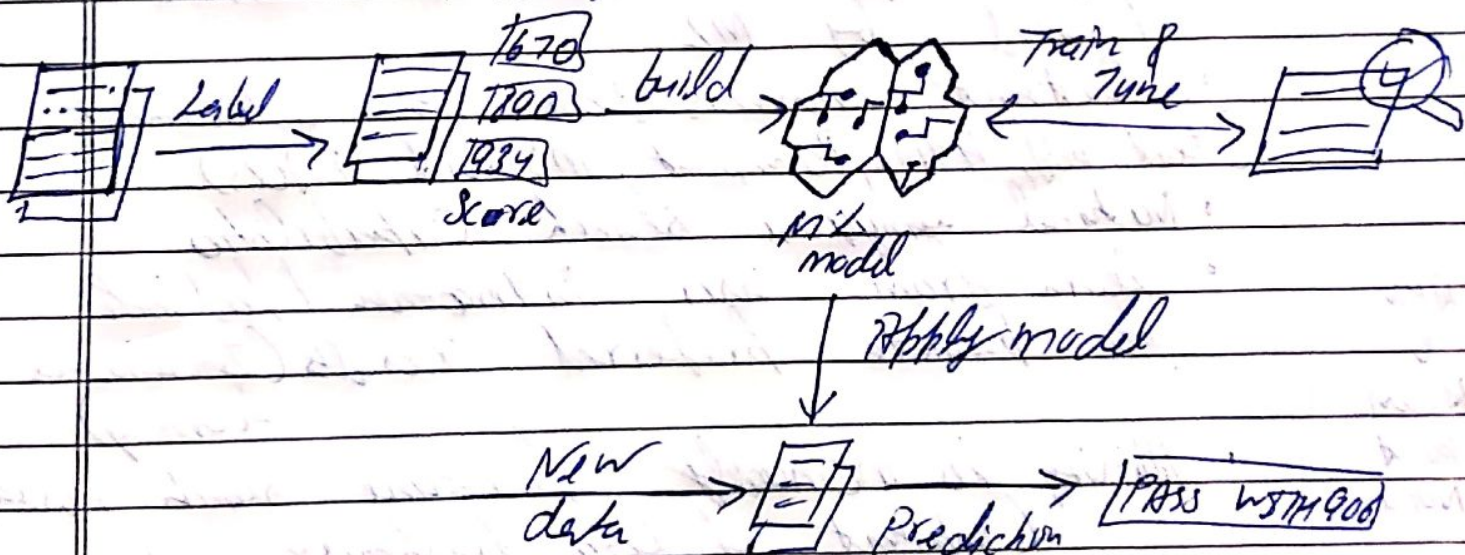 Label
670
890
934
Score
build
ML
model
Train &
Tune
Apply model
New
data
Prediction
PASS WITH 906